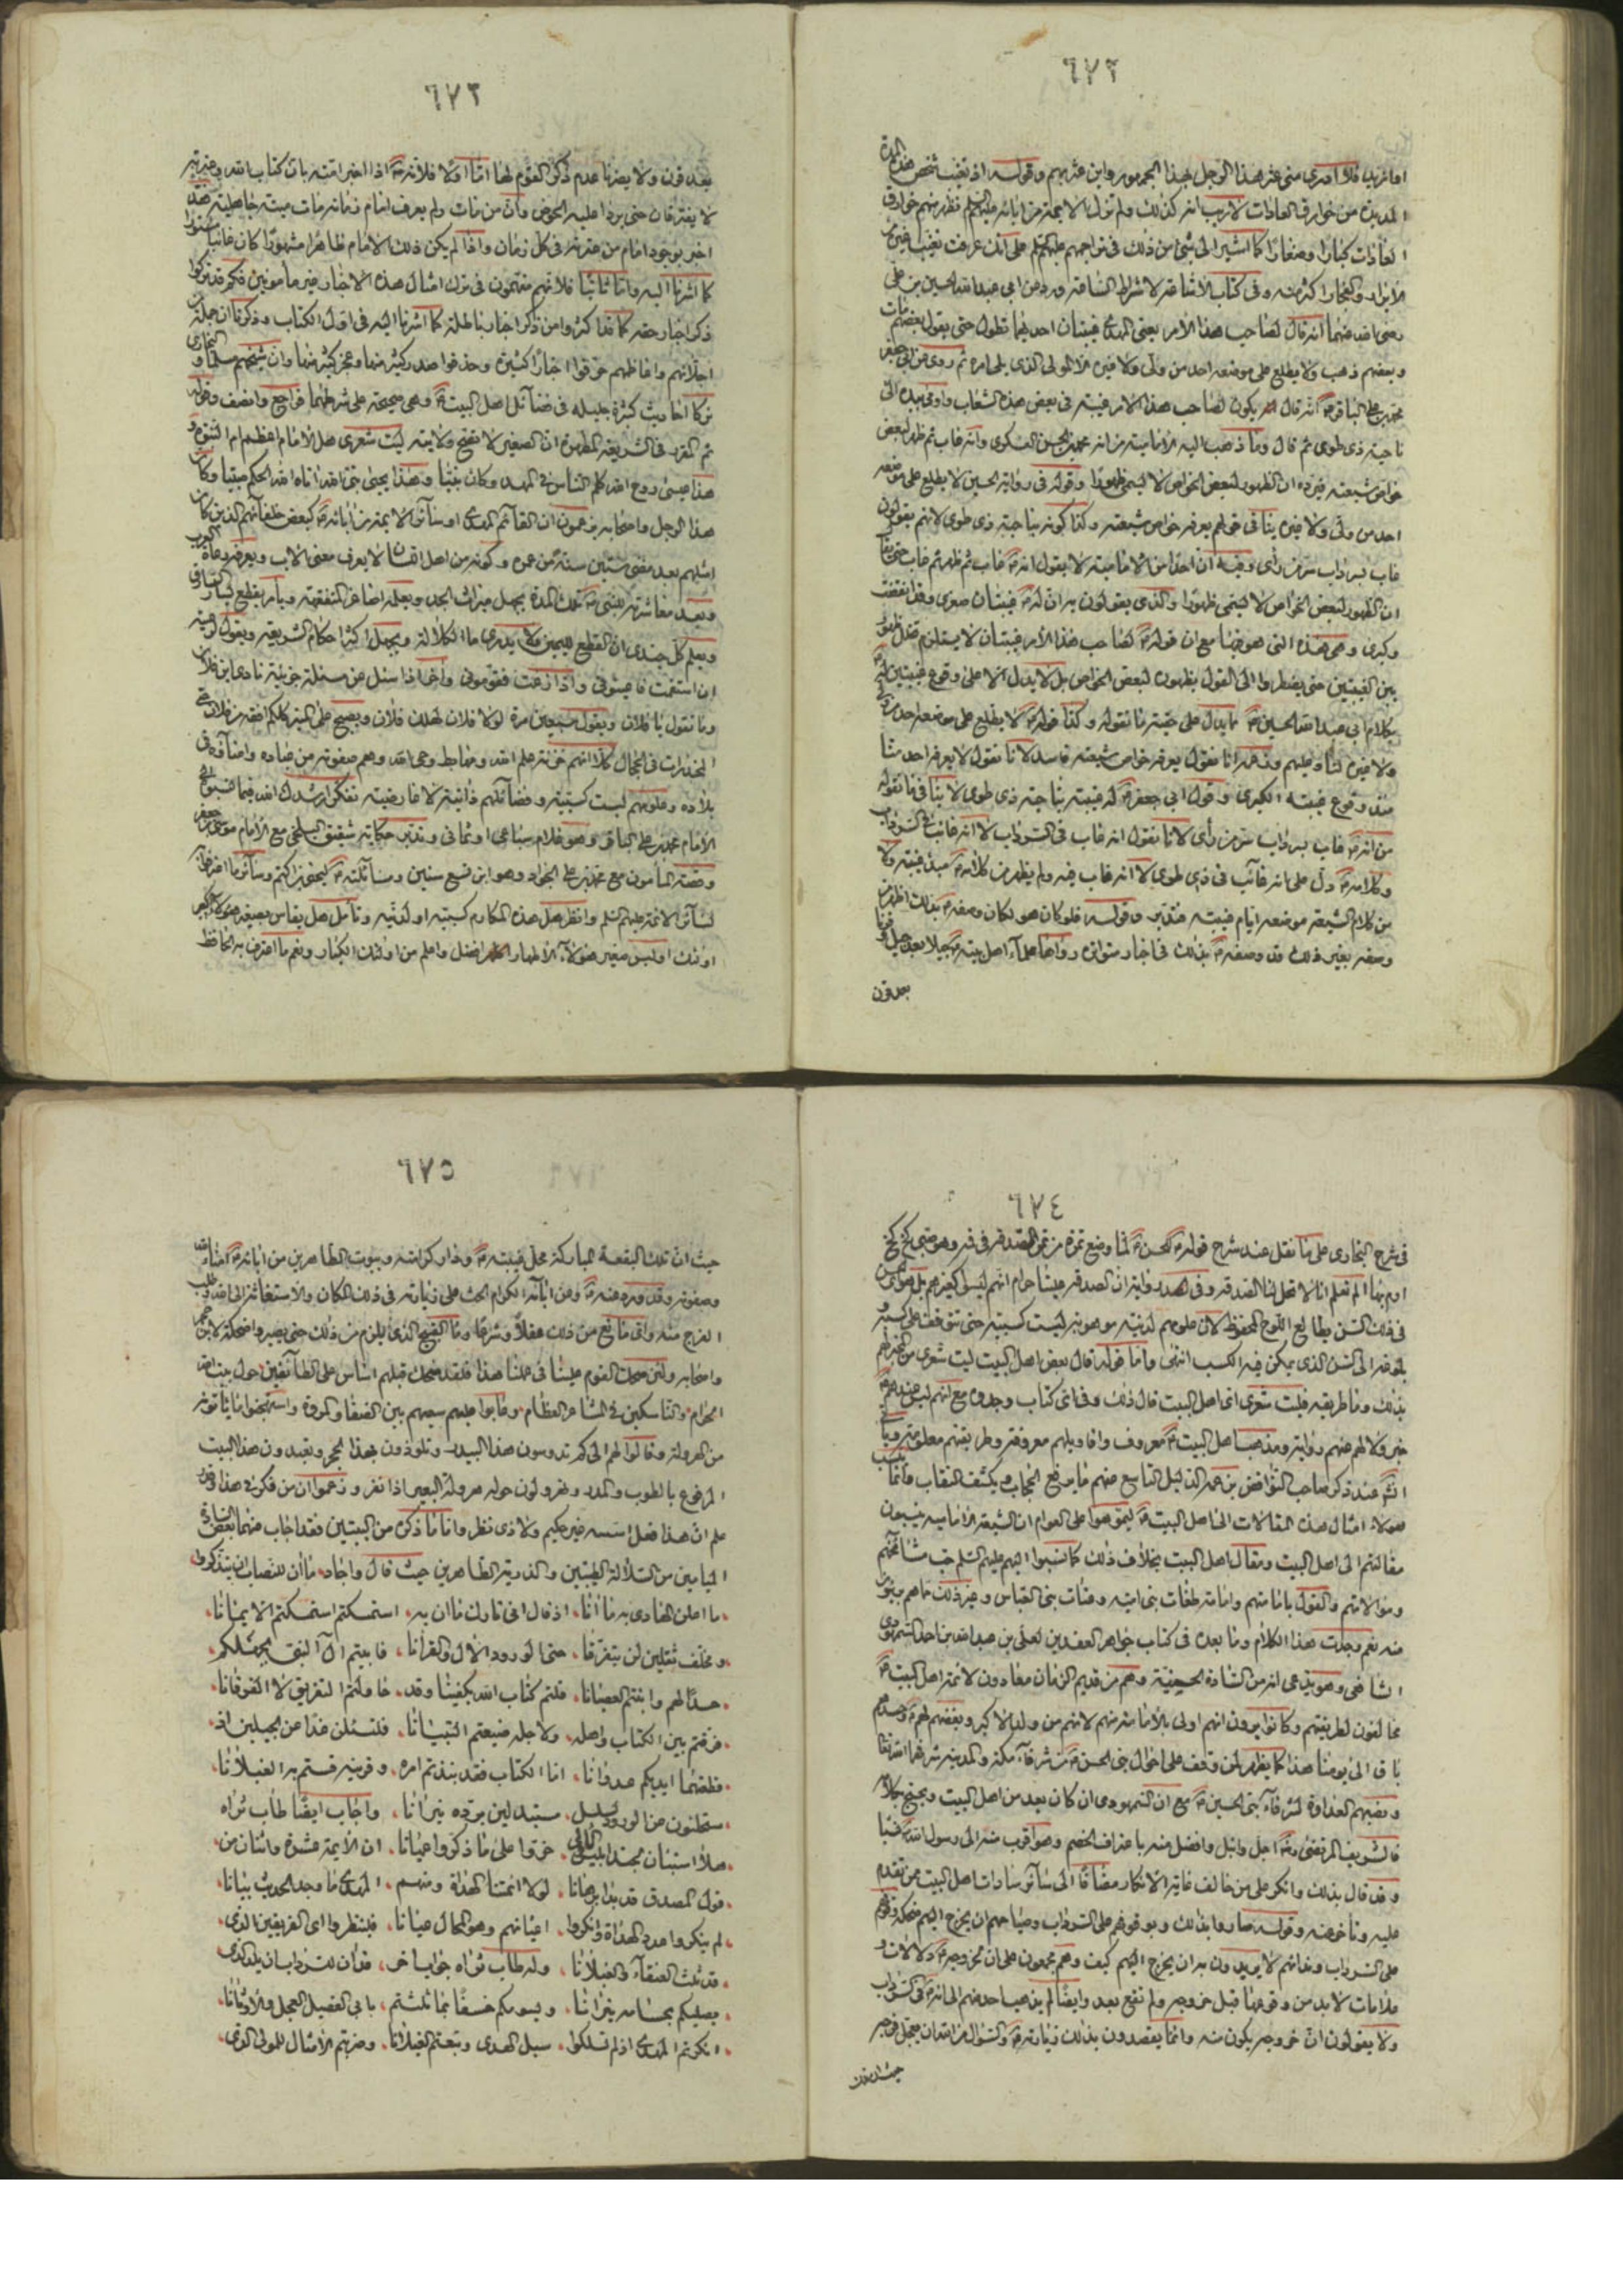 ٦٧٢
امّا تزيد فلا ادرى متى عثر هذا الرجل بهذا الجمهور واين عثر بهم وقوله اذ تغيب شخص هذه المدة
المديدة من خوارق العادات لا ريب انه كذلك ولم تزل الائمة من ابائه عليهم السلم تظهر منهم خوارق
العادات كبارا وصغارا كما اشير الى شئ من ذلك فى تراجمهم عليهم السلم على انك عرفت تغيب غيره من
الابرار والفجار اكثر منه وفى كتاب الاشاعة لاشراط الساعة ورد عن ابى عبد الله الحسين بن على
رضى الله عنهما انه قال لصاحب هذا الامر يعنى المهدى غيبتان احديهما تطول حتى يقول بعضهم مات
وبعضهم ذهب ولا يطلع على موضعه احد من ولى ولا غيره الا المولى الذى يلى امره ثم روى عن ابى جعفر
محمد بن على الباقر انه قال يكون لصاحب هذا الامر غيبة فى بعض هذه الشعاب واومى بيده الى
ناحية ذى طوى ثم قال وما ذهب اليه الامامية من انه محمد بن الحسن العسكرى وانه غاب ثم ظهر لبعض
خواص شيعته يرده ان الظهور لبعض الخواص لا يسمى ظهورا وقوله فى رواية الحسين لا يطلع على موضعه
احد من ولى ولا غيره ينافى قولهم يعرفه خواص شيعته وكذا كونه بناحية ذى طوى لانهم يقولون
غاب بسرداب سر من رأى وفيه ان احدا من الامامية لا يقول انه غاب ثم ظهر ثم غاب حتى يقال
ان الظهور لبعض الخواص لا يسمى ظهورا والذى يقولون به ان له غيبتان صغرى وقد انقضت
وكبرى وهى هذه التى هو فيها مع ان قوله لصاحب هذا الامر غيبتان لا يستلزم تخلل ظهور
بين الغيبتين حتى يضطروا الى القول بظهوره لبعض الخواص بل لا يدل الا على وقوع غيبتين له
بكلام ابى عبد الله الحسين مما يدل على حقية ما نقوله وكذا قوله لا يطلع على موضعه احد من ولى
ولا غيره لنا وعليهم ونوهم انا نقول يعرفه خواص شيعته فاسد لانا نقول لا يعرفه احد منا
منذ وقوع غيبته الكبرى وقول ابى جعفر له غيبة بناحية ذى طوى لا ينافى ما نقوله
من انه غاب بسرداب سر من رأى لانا نقول انه غاب فى السرداب لا انه غائب فى السرداب
وكلامه دل على انه غائب فى ذى طوى لا انه غاب فيه ولم يظهر من كلامه مبدء غيبته ولا
من كلام الشيعة موضعه ايام غيبته فتدبر وقوله فلو كان هو لكان وصفه بذلك اظهر من
وصفه بغير ذلك قد وصفه بذلك فى اخبار متواترة رواها علماء اهل بيته جيلا بعد جيل وقرنا
بعد قرن
٦٧٣
بعد قرن ولا يضرنا عدم ذكر القوم لها امّا اولا فلانه اذا اخبر امته بان كتاب الله وعترته
لا يفترقان حتى يردا عليه الحوض وان من مات ولم يعرف امام زمانه مات ميتة جاهلية فقد
اخبر بوجود امام من عترته فى كل زمان واذا لم يكن ذلك الامام ظاهرا مشهورا كان غائبا مستورا
كما اشرنا اليه وامّا ثانيا فلانهم متهمون فى ترك امثال هذه الاخبار غير مأمونين فكم قد تركوا
ذكر اخبار حقه كما قد اكثروا من ذكر اخبار باطلة كما اشرنا اليه فى اول الكتاب وذكرنا ان جملة من
اجلائهم واعاظمهم حرقوا اخبارا كثيرة وحذفوا صدر كثير منها وعجز كثير منها وان شيخهم مسلما والبخارى
تركا احاديث كثيرة جليلة فى فضائل اهل البيت وهى صحيحة على شرطهما فراجع وانصف وقوله
ثم المقرر فى الشريعة المطهرة ان الصغير لا تصح ولايته ليت شعرى هل الامام اعظم ام النبوة و
هذا عيسى روح الله كلم الناس فى المهد وكان نبيا وهذا يحيى نبى الله اتاه الله الحكم صبيا وكان
هذا الرجل واصحابه يزعمون ان القائم المهدى او سائر الائمة من ابائه كبعض خلفائهم الذين كان
اسلمهم بعد مضى ستين سنة من عمره وكونه من اهل اللسان لا يعرف معنى الاب ويعرفه رعاة العرب
وبعد معاشرته للنبى تلك المدة يجهل ميراث الجد ويعلمه اصاغر المتفقهة ويأمر بقطع يسار السارق
ويعلم كل جندى ان القطع لليمين ولا يدرى ما الكلالة ويجهل اكثر احكام الشريعة ويقول لرعيته
ان استقمت فاعينونى واذا زغت فقومونى واخر اذا سئل عن مسئلة جزئية نادى اين فلان
وما تقول يا فلان ويقول سبعين مرة لولا فلان لهلك فلان ويصيح على المنبر كلكم افقه من فلان حتى
المخدرات فى الحجال كلا انهم خزنة علم الله ومهابط وحى الله وهم صفوته من عباده وامناؤه فى
بلاده وعلومهم ليست كسبية وفضائلهم ذاتية لا عارضية تفكر ارشدك الله فيما صنعوا
الامام محمد بن على الباقر وهو غلام سباعى او ثمانى وتدبر حكاية شقيق البلخى مع الامام موسى بن جعفر
وقصة المأمون مع محمد بن على الجواد وهو ابن تسع سنين ومسائلته ليحيى بن اكثم وسائر ما اعترف به
لسائر الائمة عليهم السلم وانظر هل هذه المكارم كسبية او لدنية وتأمل هل يقاس بصغير هولاء كبير
اولئك اوليس صغير هولاء الاطهار افضل واعلم من اولئك الكبار ونعم ما اعترف به الحافظ
٦٧٤
فى شرح البخارى على ما نقل عند شرح قوله للحسن لما وضع تمرة من تمر الصدقة فى فيه وهو صبى كخ كخ
ارم بها الم تعلم انا لا تحل لنا الصدقة وفى رواية ان الصدقة علينا حرام انهم ليسوا كغيرهم بل هو اى الحسن
فى ذلك السن يطالع اللوح المحفوظ لان علومهم لدنية موهوبة ليست كسبية حتى تتوقف على كسبه و
بلوغه الى السن الذى يمكن فيه الكسب انتهى وامّا قوله قال بعض اهل البيت ليت شعرى من المخبر لهم
بذلك وما طريقه فليت شعرى اى اهل البيت قال ذلك وفى اى كتاب وجدوه مع انهم ليس عندهم
خبر ولا لهم عنهم رواية ومذهب اهل البيت معروف واقاويلهم معروفة وطريقتهم معلومة
صاحب النواقض
هولاء امثال هذه المقالات الى اهل البيت ليموهوا على العوام ان الشيعة الامامية ينسبون
مقالتهم الى اهل البيت ومقال اهل البيت بخلاف ذلك كما نسبوا اليهم عليهم السلم حب مشائخهم
وموالاتهم والقول بامامتهم وامامة طغاة بنى امية وعتاة بنى العباس وغير ذلك مما هم بريئون
منه نعم وجدت هذا الكلام وما بعده فى كتاب جواهر العقدين لعلى بن عبد الله بن احمد السمهودى
الشافعى وهو يدعى انه من السادة الحسينية وهم من قديم الزمان معادون لائمة اهل البيت
مخالفون لطريقتهم وكانوا يرون انهم اولى بالامامة منهم لانهم من ولد الاكبر وبغضهم لهم وحسدهم
باق الى يومنا هذا كما يظهر لمن وقف على احوال بنى الحسن من شرفاء مكة والمدينة شرفهما الله تعالى
ونصبهم العداوة لشرفاء بنى الحسين مع ان السمهودى ان كان يعد من اهل البيت ويحتج بكلامه
فالشريف المرتضى اجل وانبل وافضل منه باعتراف الخصم وهو اقرب منه الى رسول الله نسبا
وقد قال بذلك وانكر على من خالف غاية الانكار مضافا الى سائر سادات اهل البيت ممن تقدم
عليه وتأخر عنه وقوله صاروا بذلك وبوقوفهم على السرداب وصياحهم ان يخرج اليهم ضحكة وقوفهم
على السرداب ودعائهم لا يريدون به ان يخرج اليهم كيف وهم مجمعون على ان لخروجه دلالات و
علامات لا بد من وقوعها قبل خروجه ولم تقع بعد وايضا لم يذهب احد منهم الى انه فى السرداب
ولا يقولون ان خروجه يكون منه وانما يقصدون بذلك زيارته والسؤال من الله ان يعجل فرجه
حيث ان تلك
٦٧٥
حيث ان تلك البقعة المباركة محل غيبته ودار كرامته وبيوت الطاهرين من ابائه امناء الله
وصفوته وقد ورد عنه وعن ابائه الكرام الحث على زيارته فى ذلك المكان والاستغاثة الى الله وطلب
الفرج منه واى مانع من ذلك عقلا وشرعا وما القبيح الذى يلزم من ذلك حتى يصيروا ضحكة لابن حجر
واصحابه ولئن ضحك القوم علينا فى عملنا هذا فلقد ضحك قبلهم اناس على الطائفين حول بيت الله
الحرام والناسكين فى المشاعر العظام وعابوا عليهم سعيهم بين الصفا والمروة واستهجنوا ما يأتونه
من الهرولة وقالوا لهم الى كم تدوسون هذا البيدر وتلوذون بهذا الحجر وتعبدون هذا البيت
المرفوع بالطوب والمدر وتهرولون حوله هرولة البعير اذا نفر وزعموا ان من فكر فى هذا وقدر
علم ان هذا فعل اسسه غير حكيم ولا ذى نظر وامّا ما ذكره من البيتين فقد اجاب عنهما بعض السادة
الميامين من السلالة الطيبين والذرية الطاهرين حيث قال واجاد ما آن للنصاب ان يتذكروا
ما اعلن الهادى به ما آنا اذ قال انى تارك ما ان به استمسكتم الايمانا
ومخلف ثقلين لن يتفرقا حتى لورود الال والقرآنا فابيتم ال النبى بجهلكم
حسدا لهم وابنتم العصيانا قلتم كتاب الله يكفينا وقد حاولتم التفريق لا الفرقانا
فرقتم بين الكتاب واهله ولاجله ضيعتم التبيانا فلتسئلن غدا عن الحبلين اذ
قطعتهما ايديكم عدوانا امّا الكتاب فقد نبذتم امره وقرينه قستم به الغيلانا
ستحلئون عن الورود مبتدلين ببرده نيرانا واجاب ايضا طاب ثراه
هلا استبنان خرقوا على ما ذكروا عميانا ان الائمة عشرة واثنان من
قول المصدق قد بدا برهانا لولا ائمتنا الهداة ومنهم المهدى ما وجد الحديث بيانا
لم ينكروا عدد الهداة وانكروا اعيانهم وهو المحال عيانا فلينظروا اى الفريقين الذى
قد ثلث العنقاء والغيلانا وله طاب ثراه جوابا اخر قد آن للسرداب ان يلد الذى
يصليكم بحسامه نيرانا ويسومكم خسفا بما ثلثتم بابى الفصيل العجل والاوثانا
انكرتم المهدى اذ لم تسلكوا سبل الهدى وتبعتم الغيلانا وضربتم الامثال للمولى الذى